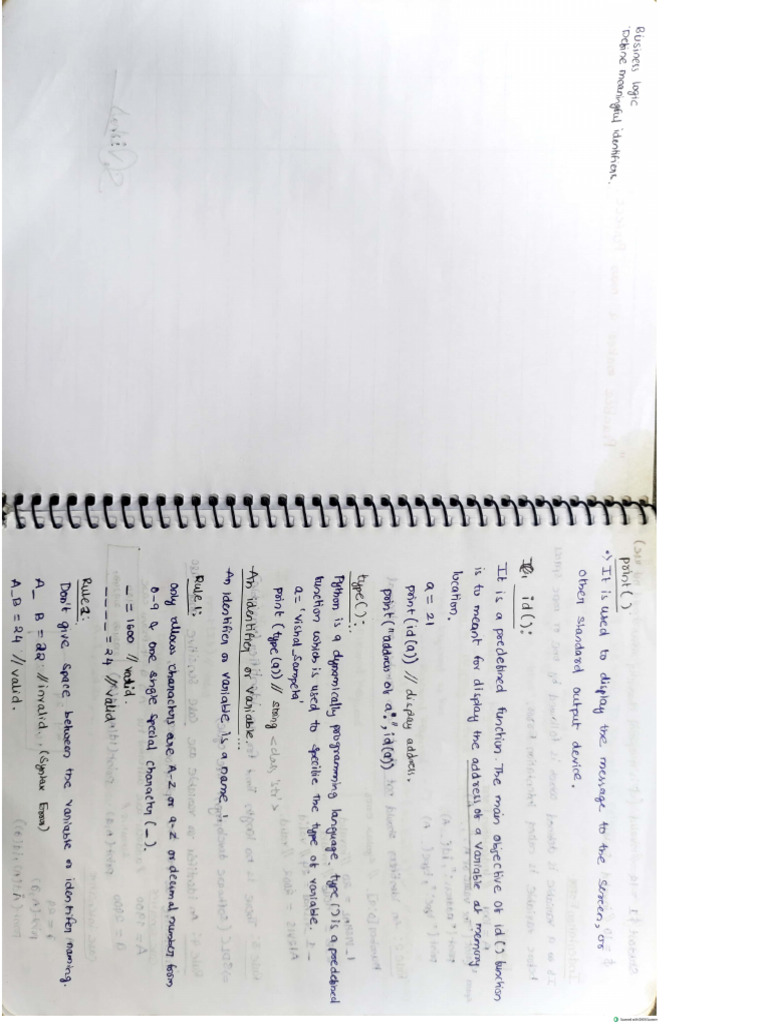 Business logic
Define meaningful identifiers.
print()
It is used to display the message to the screen, or
other standard output device.
id():
It is a predefined function. The main objective of id() function
is to meant for display the address of a variable at memory
location.
a = 21
print(id(a)) // display address.
print("address of a:", id(a))
type():
Python is a dynamically programming language, type() is a predefined
function which is used to specifie the type of variable.
a = 'vishal_sampeta'
print (type(a)) // string <class, 'str'>
An identifier or variable
An identifier or variable is a name.
Rule 1:
only allows characters are A-Z or a-z or decimal number from
0-9 & one single special character (_).
_ = 1600 // valid.
_ _ _ _ = 24 // valid
Rule 2:
Don't give space between the variable or identifer naming.
A_ B = 22 // invalid. (Syntax Error)
A_B = 24 // valid.
Scanned with OKEN Scanner